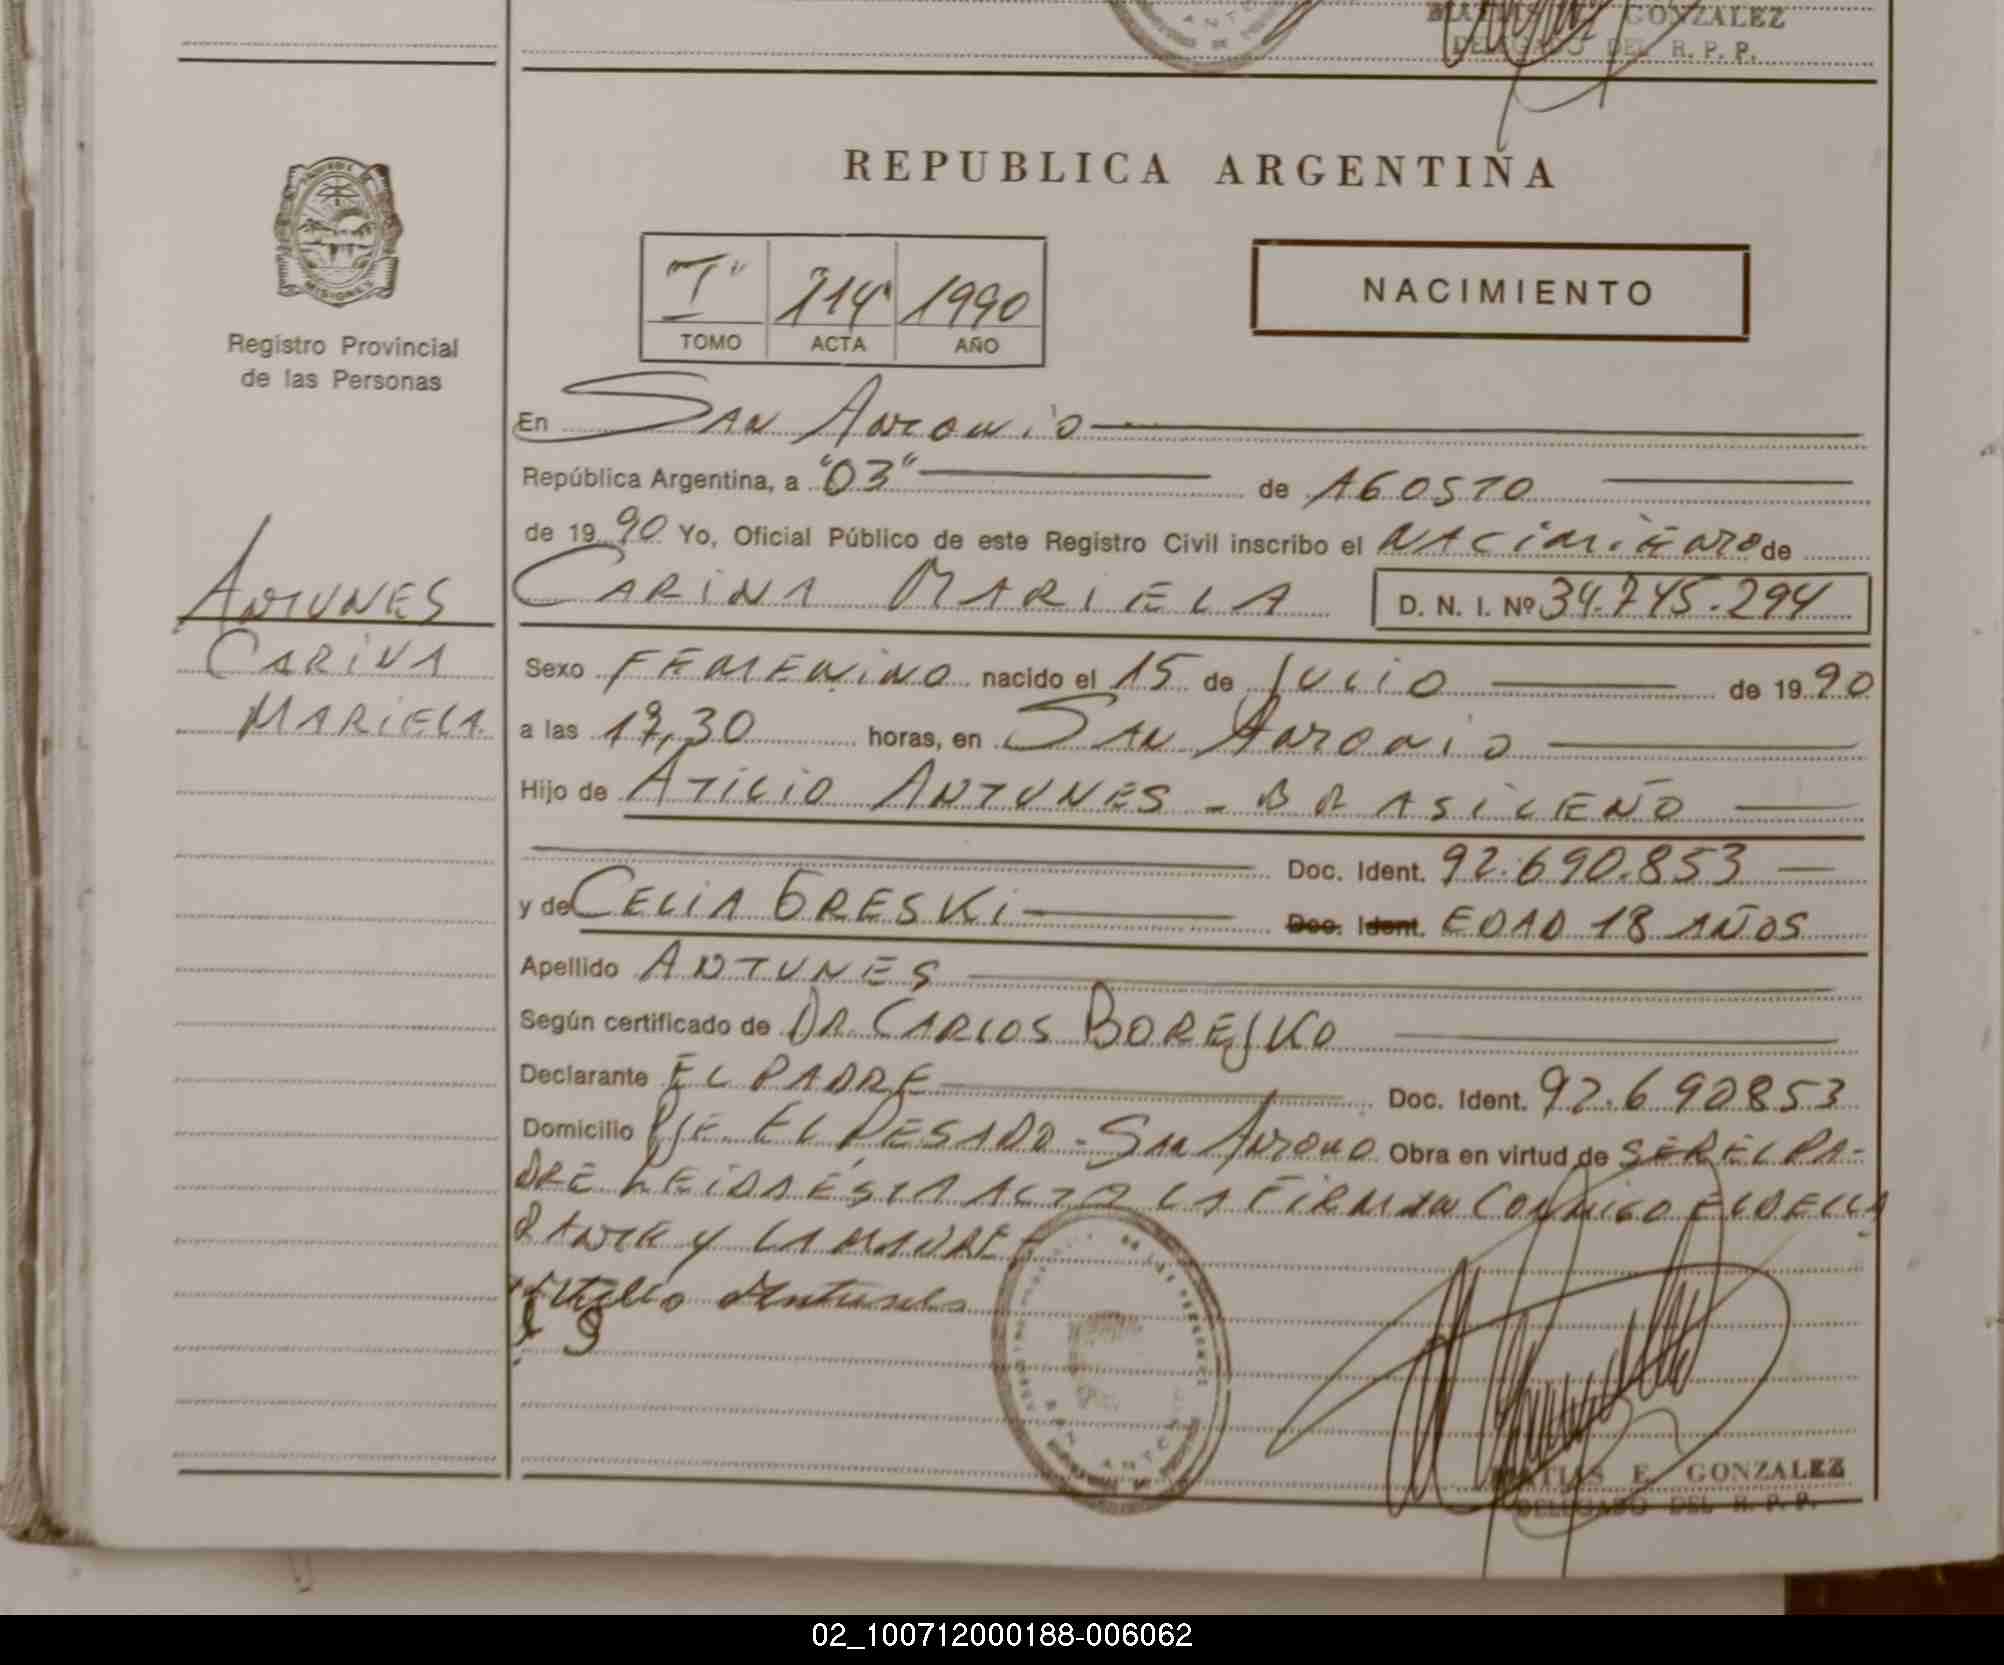 GONZALEZ
DELEGADO DEL R. P. P.
REPUBLICA ARGENTINA
MISIONES
Registro Provincial
de las Personas
I" 114
1990
TOMO ACTA AÑO
NACIMIENTO
En SAN ANTONIO
República Argentina, a "03" de AGOSTO
de 1990 Yo, Oficial Público de este Registro Civil inscribo el NACIMIENTO de
CARINA MARIELA D. N. I. Nº 34.745.294
ANTUNES
CARINA
MARIELA
Sexo FEMENINO nacido el 15 de JULIO de 1990
a las 17,30 horas, en SAN ANTONIO
Hijo de ATILIO ANTUNES - BRASILEÑO
Doc. Ident. 92.690.853
y de CELIA GRESKI Doc. Ident. EDAD 18 AÑOS
Apellido ANTUNES
Según certificado de DR. CARLOS BORESKO
Declarante EL PADRE Doc. Ident. 92.690853
Domicilio PJE. EL PESADO - SAN ANTONIO Obra en virtud de SER EL PA-
DRE LEIDA ÉSTA ACTA LA FIRMAN CONMIGO EL DECLA
RANTE Y LA MADRE
Antunes
MATIAS E. GONZALEZ
DELEGADO DEL R. P. P.
02_100712000188-006062